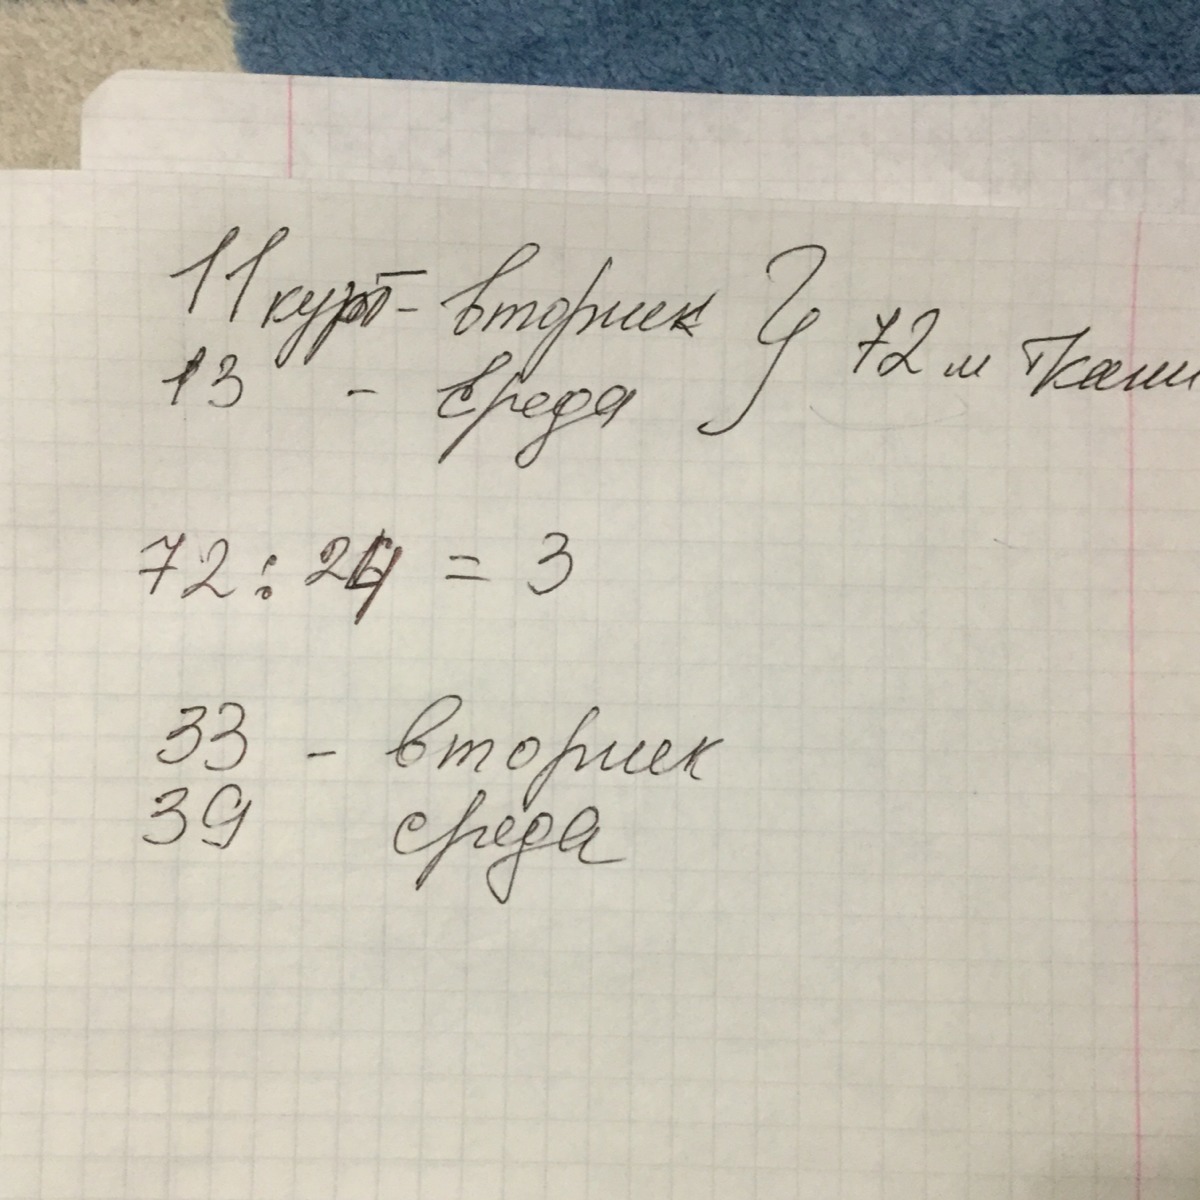 11 курт - вторник } 72 м ткани
13 - среда
72 : 24 = 3
33 - вторник
39 среда